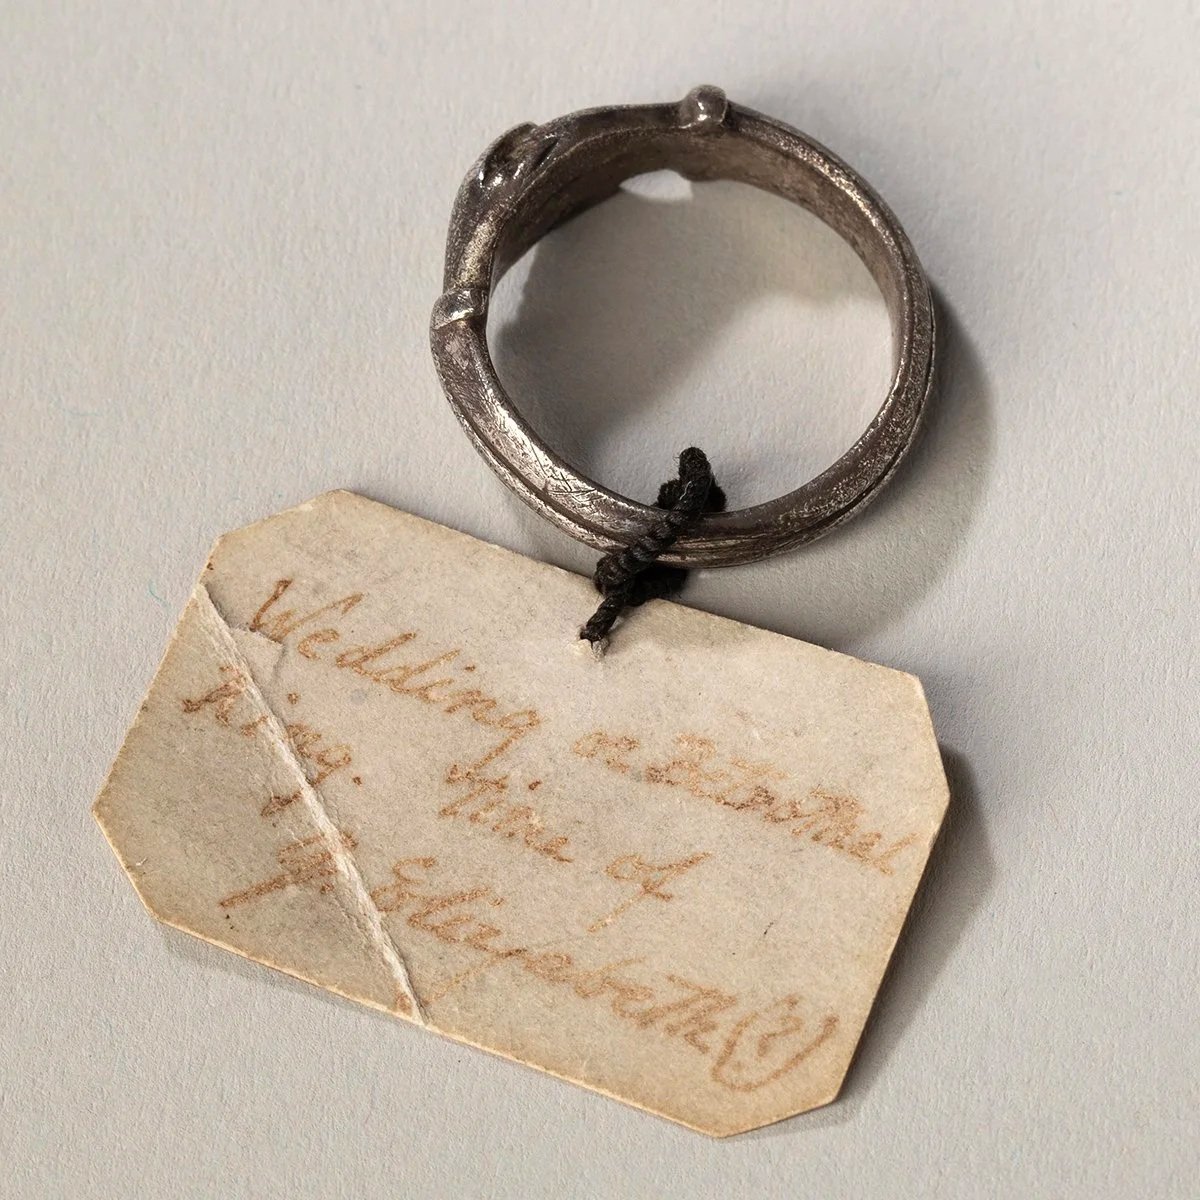 Wedding or Betrothel
Ring. time of
Q. Elizabeth (?)